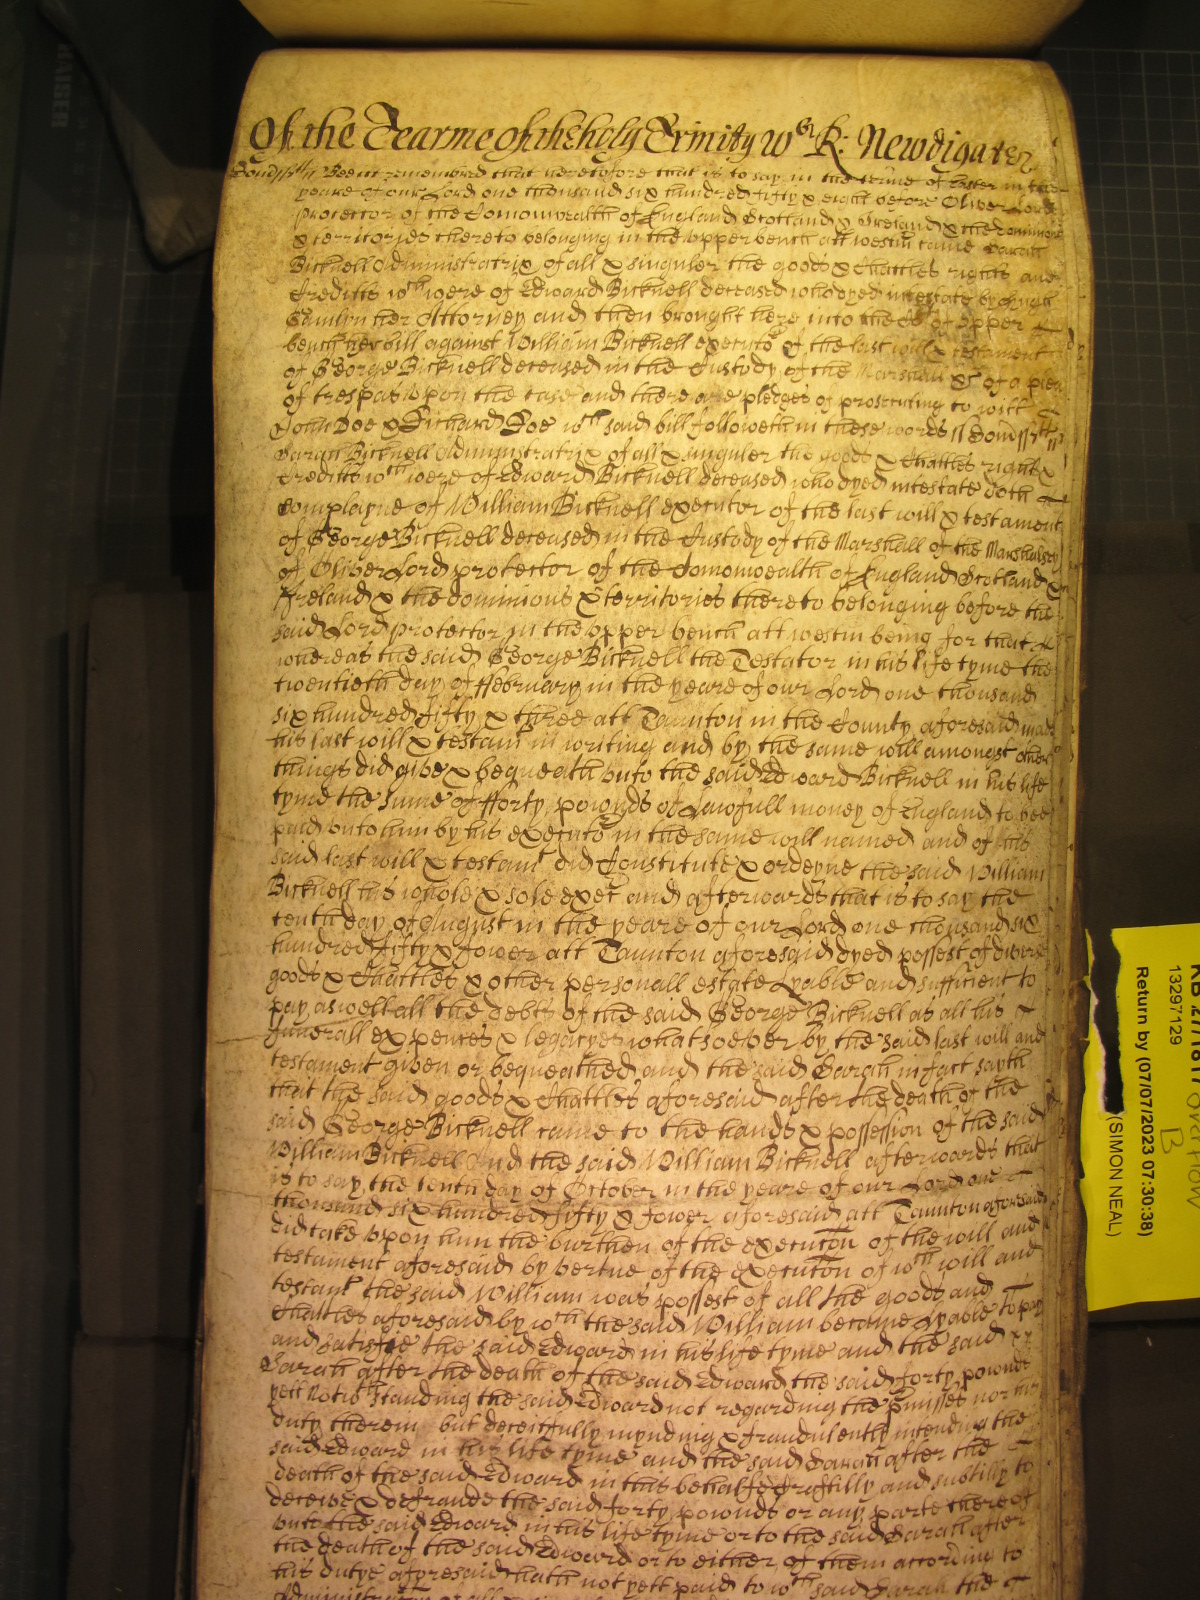 Of the Tearme of the holy Trinity Wth R: Newdigate
Somsstt // Bee it remembred that heretofore that is to say in the terme of Easter in the
yeare of our Lord one thousand six hundred fifty & eight before Oliver Lord
protector of the Comonwealth of England Scotland & Ireland & the dominions
& territories thereto belonging in the upper bench att westm came Sarah
Bicknell Administratrix of all & singuler the goods & Chattles rights and
Creditts wch were of Edward Bicknell deceased who dyed intestate by Hugh
Gamlyn her Attorney and then brought here into the Ct of upper
bench her bill against William Bicknell executor of the last will & testament
of George Bicknell deceased in the Custody of the Marshall &c of a plea
of trespas upon the case and there are pledges of prosecuting to witt
John Doe & Richard Roe wch said bill followeth in these words // Somsstt //
Sarah Bicknell Administratrix of all & singuler the goods & Chattles rights &
Creditts wch were of Edward Bicknell deceased who dyed intestate doth
complayne of William Bicknell executor of the last will & testament
of George Bicknell deceased in the Custody of the Marshall of the Marshalsey
of Oliver Lord protector of the Comonwealth of England Scotland &
Ireland & the dominions & territories thereto belonging before the
said Lord protector in the upper bench att westm being for that
whereas the said George Bicknell the Testator in his life tyme the
twentieth day of ffebruary in the yeare of our Lord one thousand
six hundred fifty & three att Taunton in the County aforesaid made
his last will & testam in writing and by the same will amongst other
things did give & bequeath unto the said Edward Bicknell in his life
tyme the sume of fforty pounds of Lawfull money of England to bee
paid unto him by his executor in the same will named and of his
said last will & testamt did Constitute & ordeyne the said William
Bicknell his whole & sole exer and afterwards that is to say the
tenth day of August in the yeare of our Lord one thousand six
hundred fifty & fower att Taunton aforesaid dyed possest of diverse
goods & Chattles & other personall estate Lyable and sufficient to
pay aswell all the debts of the said George Bicknell as all his
funerall expences & legacyes whatsoever by the said last will and
testament given or bequeathed and the said Sarah in fact sayth
that the said goods & Chattles aforesaid after the death of the
said George Bicknell came to the hands & possession of the said
William Bicknell And the said William Bicknell afterwards that
is to say the tenth day of October in the yeare of our Lord one
thousand six hundred fifty & fower aforesaid att Taunton aforesaid
did take upon him the burthen of the execution of the will and
testament aforesaid by vertue of the execution of wch will and
testamt the said William was possest of all the goods and
Chattles aforesaid by wch the said William became Lyable to pay
and satisfie the said Edward in his life tyme and the said
Sarah after the death of the said Edward the said forty pounds
yett notwthstanding the said Edward not regarding the pmisses nor his
duty therein but deceitfully mynding & fraudulently intending the
said Edward in his life tyme and the said Sarah after the
death of the said Edward in this behalfe Craftilly and subtilly to
deceive & defraude the said forty pounds or any parte thereof
unto the said Edward in his life tyme or to the said Sarah after
the death of the said Edward or to either of them according to
his dutye aforesaid hath not yett paid to wch said Sarah the
Administration of all
13297129
Return by (07/07/2023 07:30:38)
(SIMON NEAL)